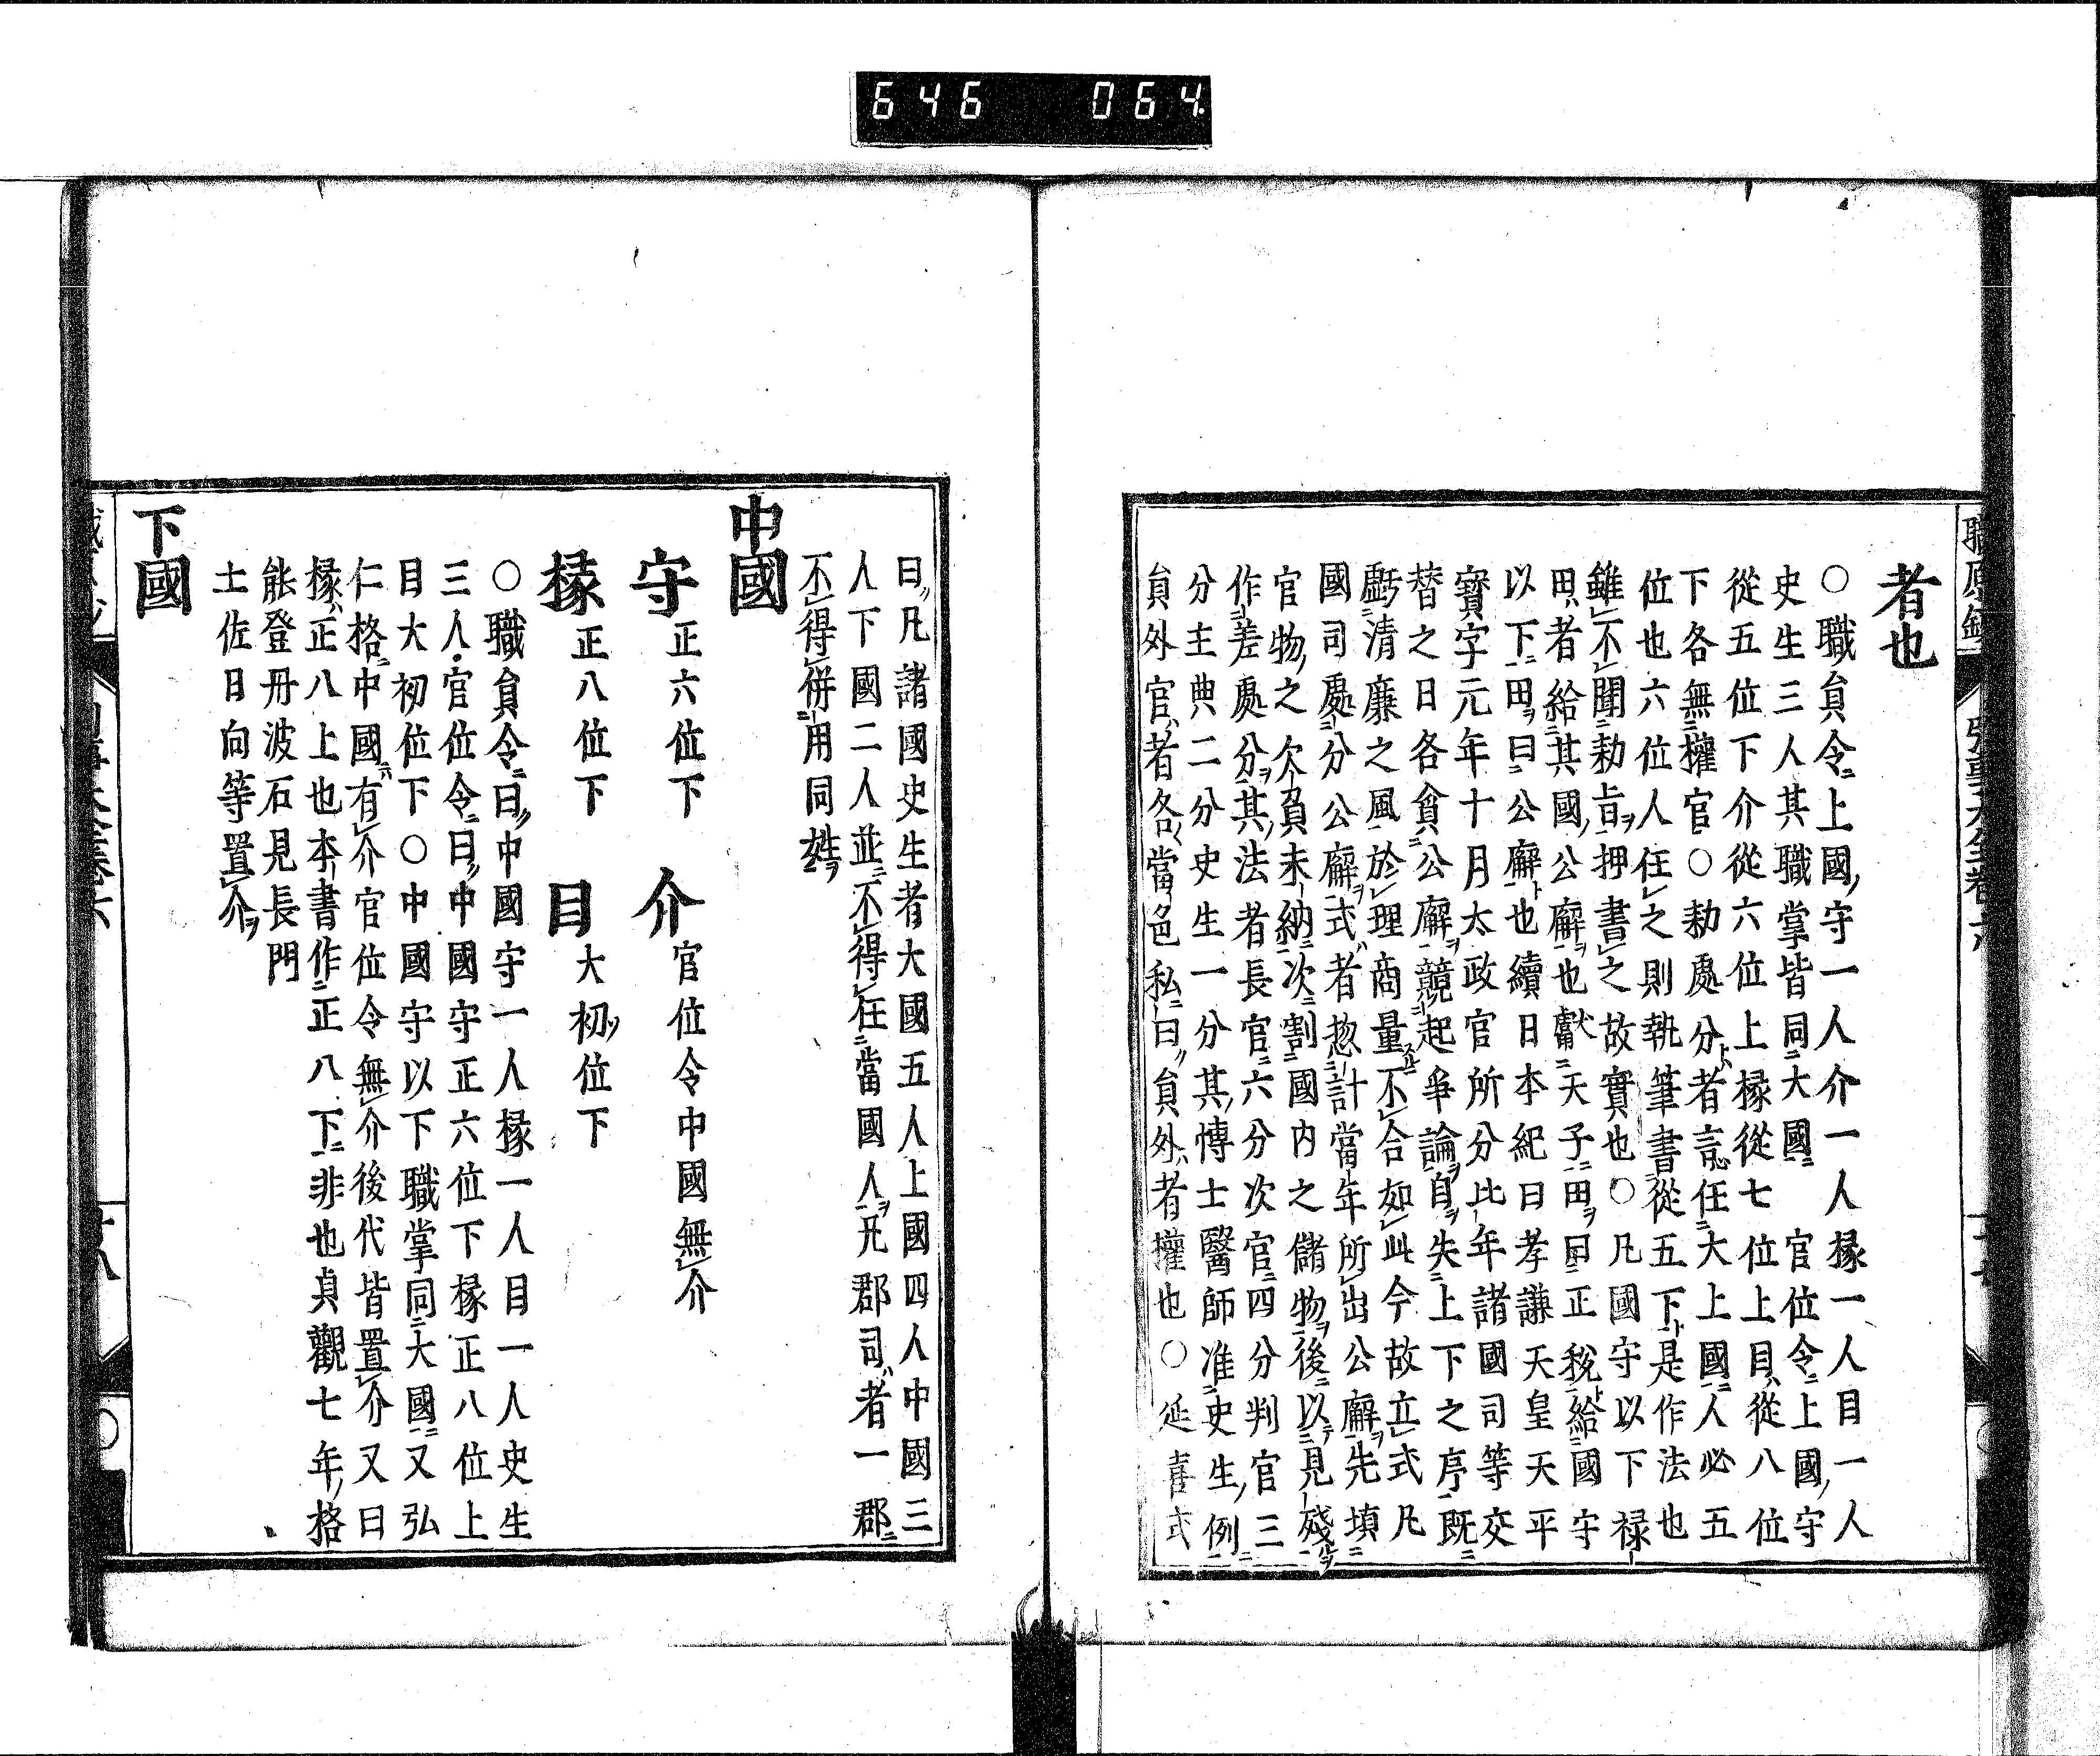 646 064
者也
○職貟令上國守一人介一人掾一人目一人
史生三人其職掌皆同大國官位令上國守
從五位下介從六位上掾從七位上目從八位
下各無權官○勅處分者言任大上國人必五
位也六位人任之則執筆書從五下是作法也
雖不聞勅旨押書之故實也○凡國守以下禄
田者給其國公廨也獻天子田曰正稅給國守
以下田曰公廨也續日本紀曰孝謙天皇天平
寶字元年十月太政官所分比年諸國司等交
替之日各貪公廨競起爭論自失上下之序既
虧清廉之風於理商量不合如此今故立式凡
國司處分公廨式者惣計當年所出公廨先填
官物之欠負未納次割國内之儲物後以見殘
作差處分其法者長官六分次官四分判官三
分主典二分史生一分其博士醫師准史生例
貟外官者各當色私曰貟外者權也○延喜式
曰凡諸國史生者大國五人上國四人中國三
人下國二人並不得任當國人凡郡司者一郡
不得併用同姓
中國
守正六位下 介官位令中國無介
掾正八位下 目大初位下
○職貟令曰中國守一人掾一人目一人史生
三人官位令曰中國守正六位下掾正八位上
目大初位下○中國守以下職掌同大國又弘
仁格中國有介官位令無介後代皆置介又曰
掾正八上也本書作正八下非也貞觀七年格
能登丹波石見長門
土佐日向等置介
下國